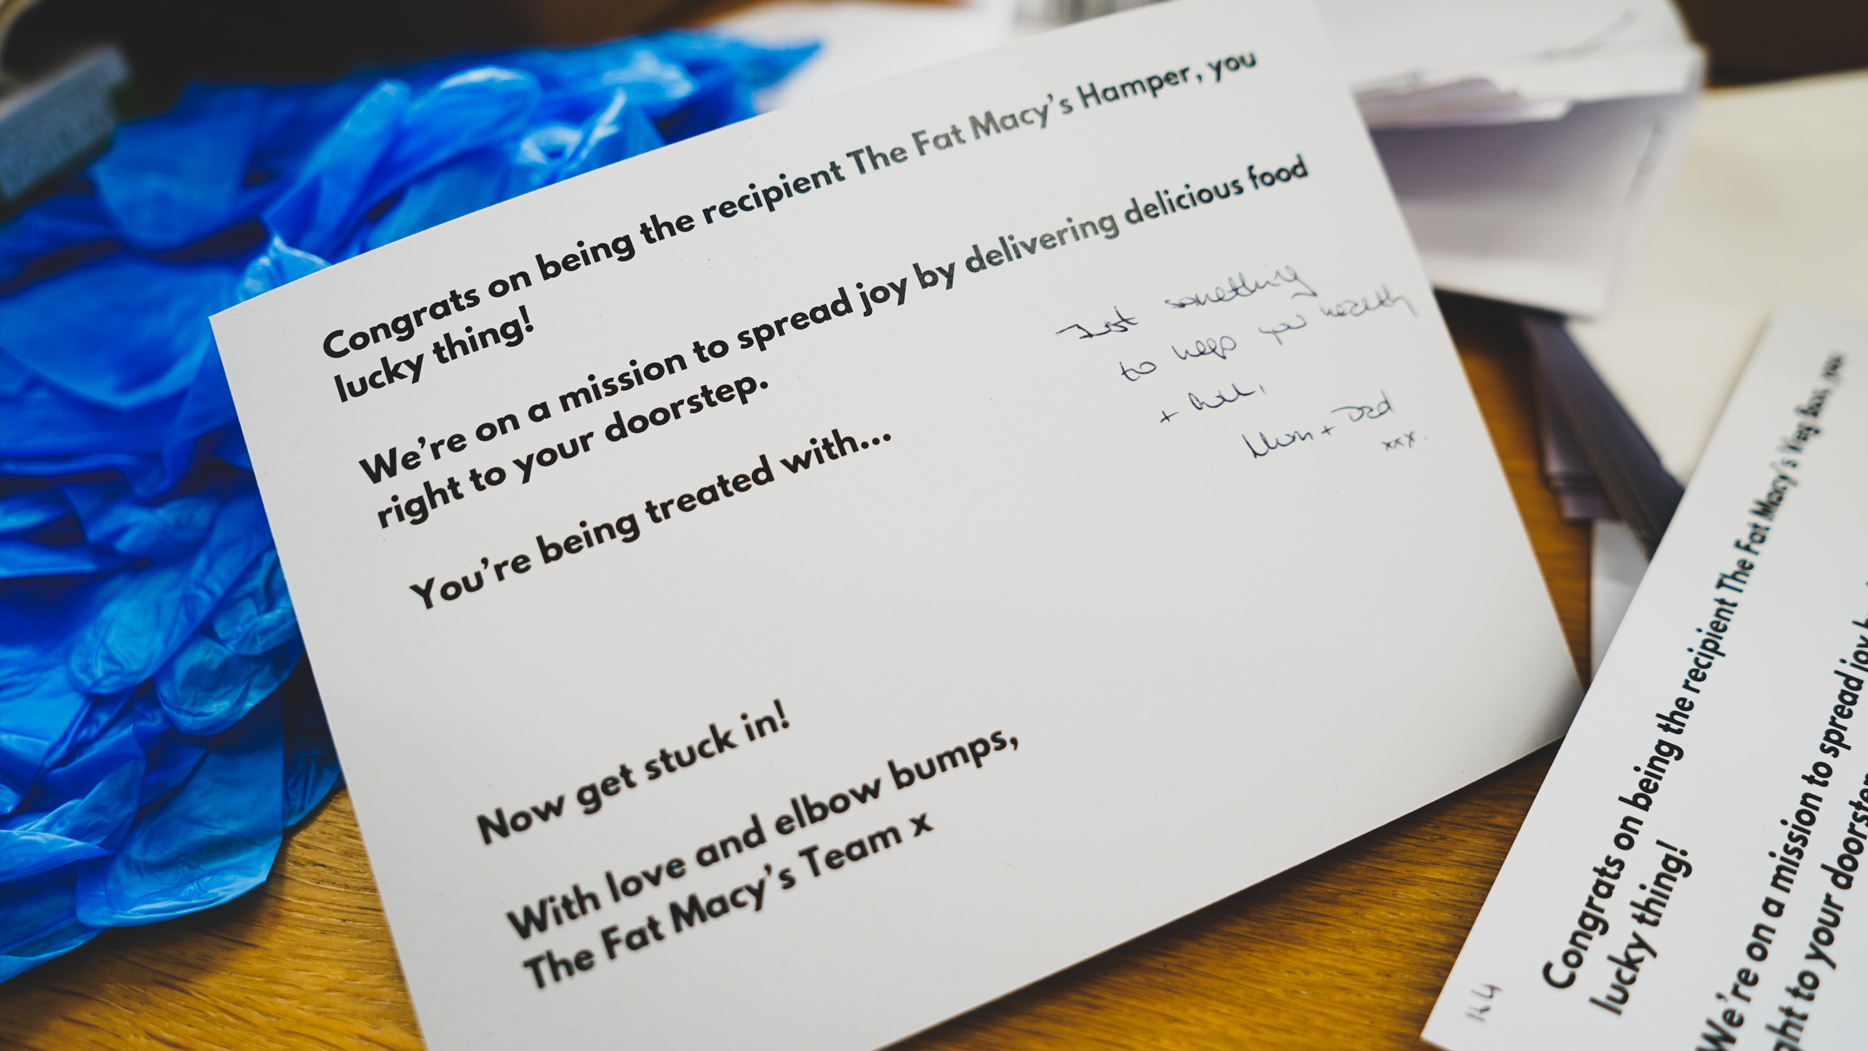 Congrats on being the recipient The Fat Macy's Hamper, you
lucky thing!
We're on a mission to spread joy by delivering delicious food
right to your doorstep.
You're being treated with...
Now get stuck in!
With love and elbow bumps,
The Fat Macy's Team x
Just something
to keep you healthy
+
Mum + Dad
xxx
Congrats on being the recipient The Fat Macy's Veg Box, you
lucky thing!
We're on a mission to spread joy
right to your doorstep